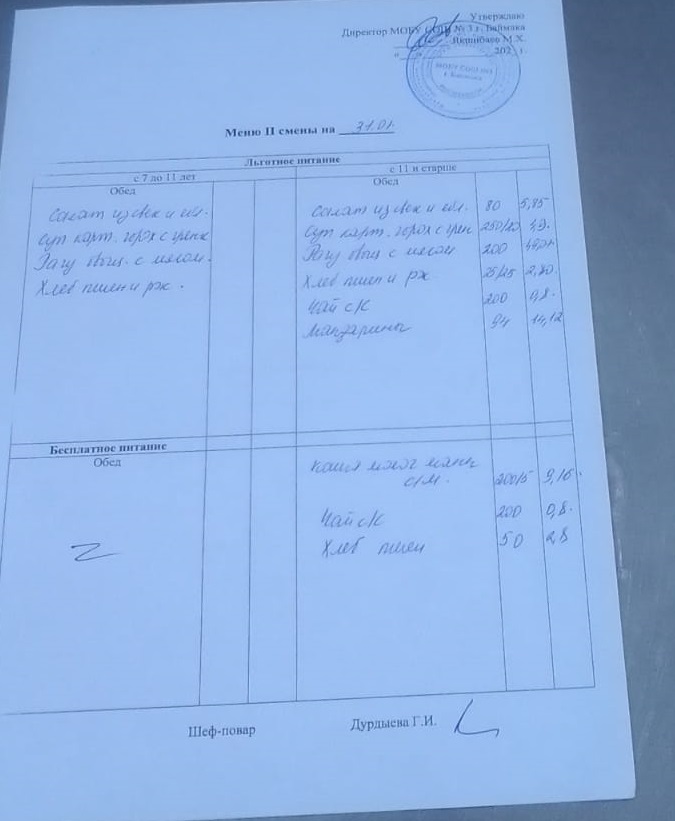 Утверждаю
Директор МОБУ СОШ № 3 г. Баймака
Якшибаев М.Х.
202 г.
МОБУ СОШ №3
г. Баймака
Меню II смены на 31.01.
Льготное питание
с 7 до 11 лет
с 11 и старше
Обед
Обед
Салат из свек и ябл.
Салат из свек и ябл. 80 5,85
Суп карт. горох с гренк
Суп карт. горох с грен 250/20
Рагу овощ. с мясом.
Рагу овощ с мясом 200
Хлеб пшен и рж.
Хлеб пшен и рж 25/25 2,80
Чай с/к 200 0,8.
Мандарины 94 14,12
Бесплатное питание
Обед
Каша молоч манн
с/м. 200/5 9,16.
Z
Чай с/к 200 0,8.
Хлеб пшен 50 2,8
Шеф-повар Дурдыева Г.И.